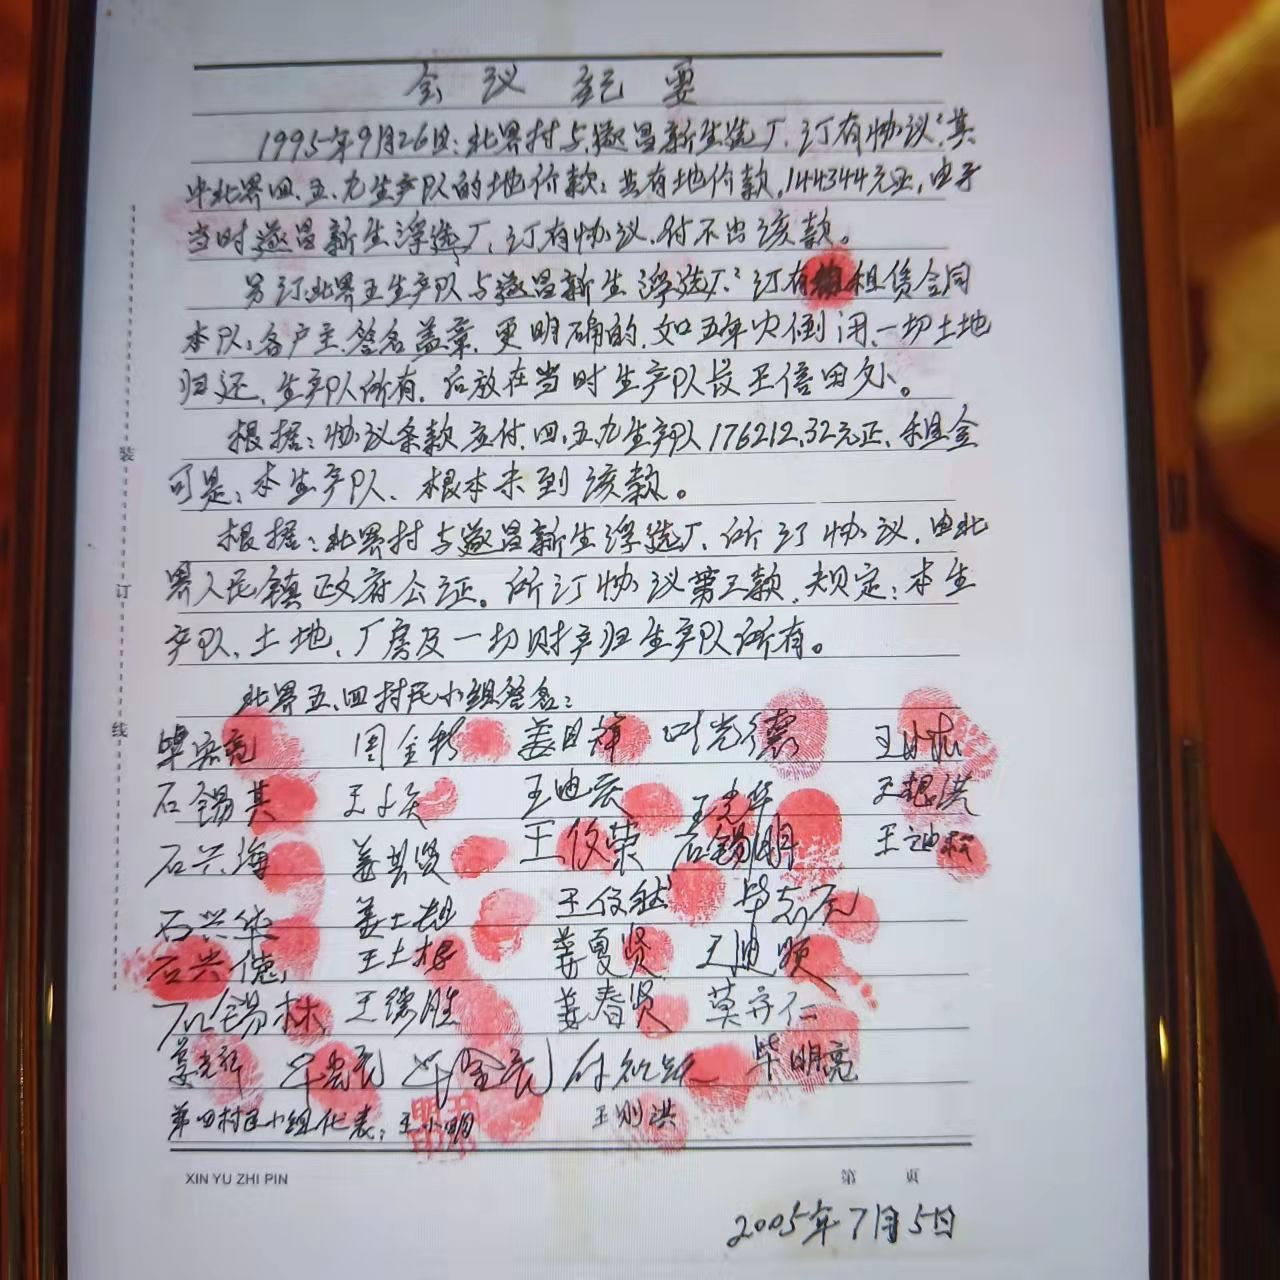 会议记要
1995年9月26日:北界村与遂昌新生选厂.订有协议,其
中北界四、五、九生产队的地价款:共有地价款,144344元正,由于
当时遂昌新生浮选厂、订有协议.付不出该款。
另订北界五生产队与遂昌新生浮选厂:订有租赁合同
本队:各户主.签名盖章.更明确的.如五年内倒闭.一切土地
归还.生产队所有.后放在当时生产队长王倍田处。
根据:协议条款应付.四、五、九生产队176212.32元正.租金
可是:本生产队、根本未到该款。
根据:北界村与遂昌新生浮选厂、所订协议.由北
界人民镇政府公证。所订协议第三款.规定:本生
产队、土地、厂房及一切财产归生产队所有。
北界五、四村民小组签名:
周金 姜日祥 叶光德
石锡其 王迪云 王光华 王根洪
石兴海 姜其贤 王俊荣 石锡明 王迪松
石兴华 姜土根 王俊
石兴德 王土根 姜夏贤 王迪
石锡林 王德胜 姜春贤 莫齐仁
毕明亮
第四村民小组代表:王小明 王刚洪
XIN YU ZHI PIN 第 页
2005年7月5日
装
订
线